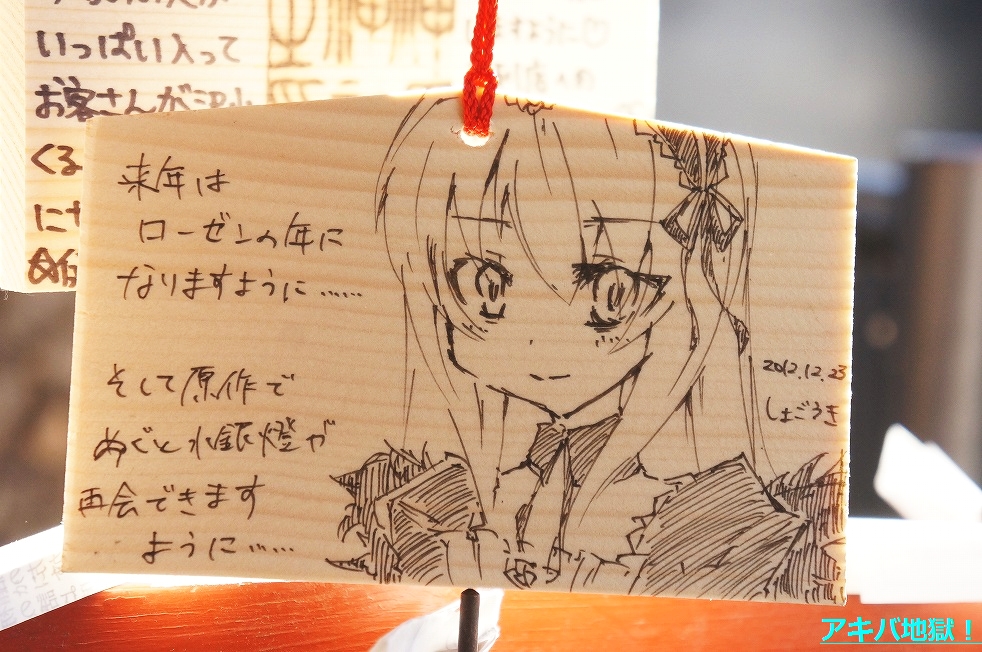 いっぱい入って
お客さんが沢山
くる
来年は
ローゼンの年に
なりますように……
そして原作で
めぐと水銀燈が
再会できます
ように……
2012.12.23
しょごうき
アキバ地獄！